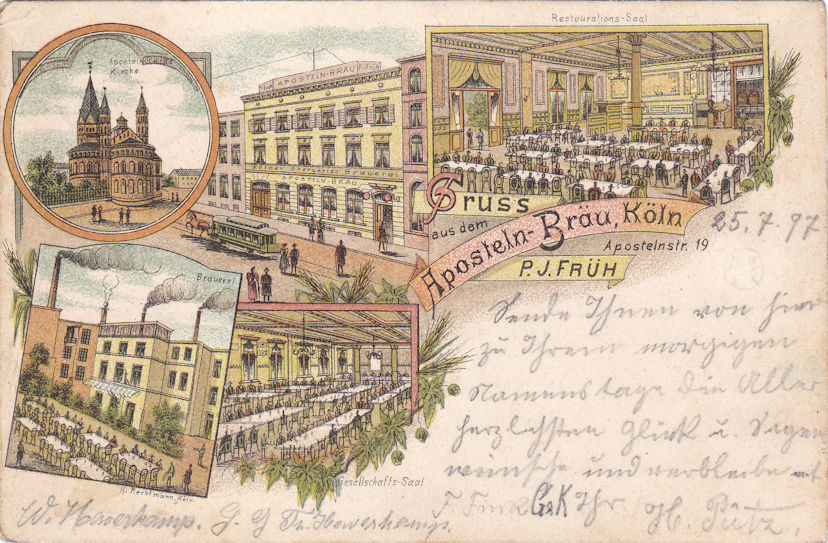 Restaurations-Saal
Aposteln
Kirche
APOSTELN-BRÄU
APOSTELN-BRÄU
Gruss
aus dem
Aposteln-Bräu, Köln
Apostelnstr. 19
P.J. FRÜH
25.7.97
Brauerei
Sende Ihnen von hier
zu Ihrem morgigen
Namenstage die Aller
herzlichsten Glück u. Segen
wünsche und verbleibe mit
Ihr H. Pütz.
Gesellschafts-Saal
Köln
W. Haverkamp. Haverkamp.